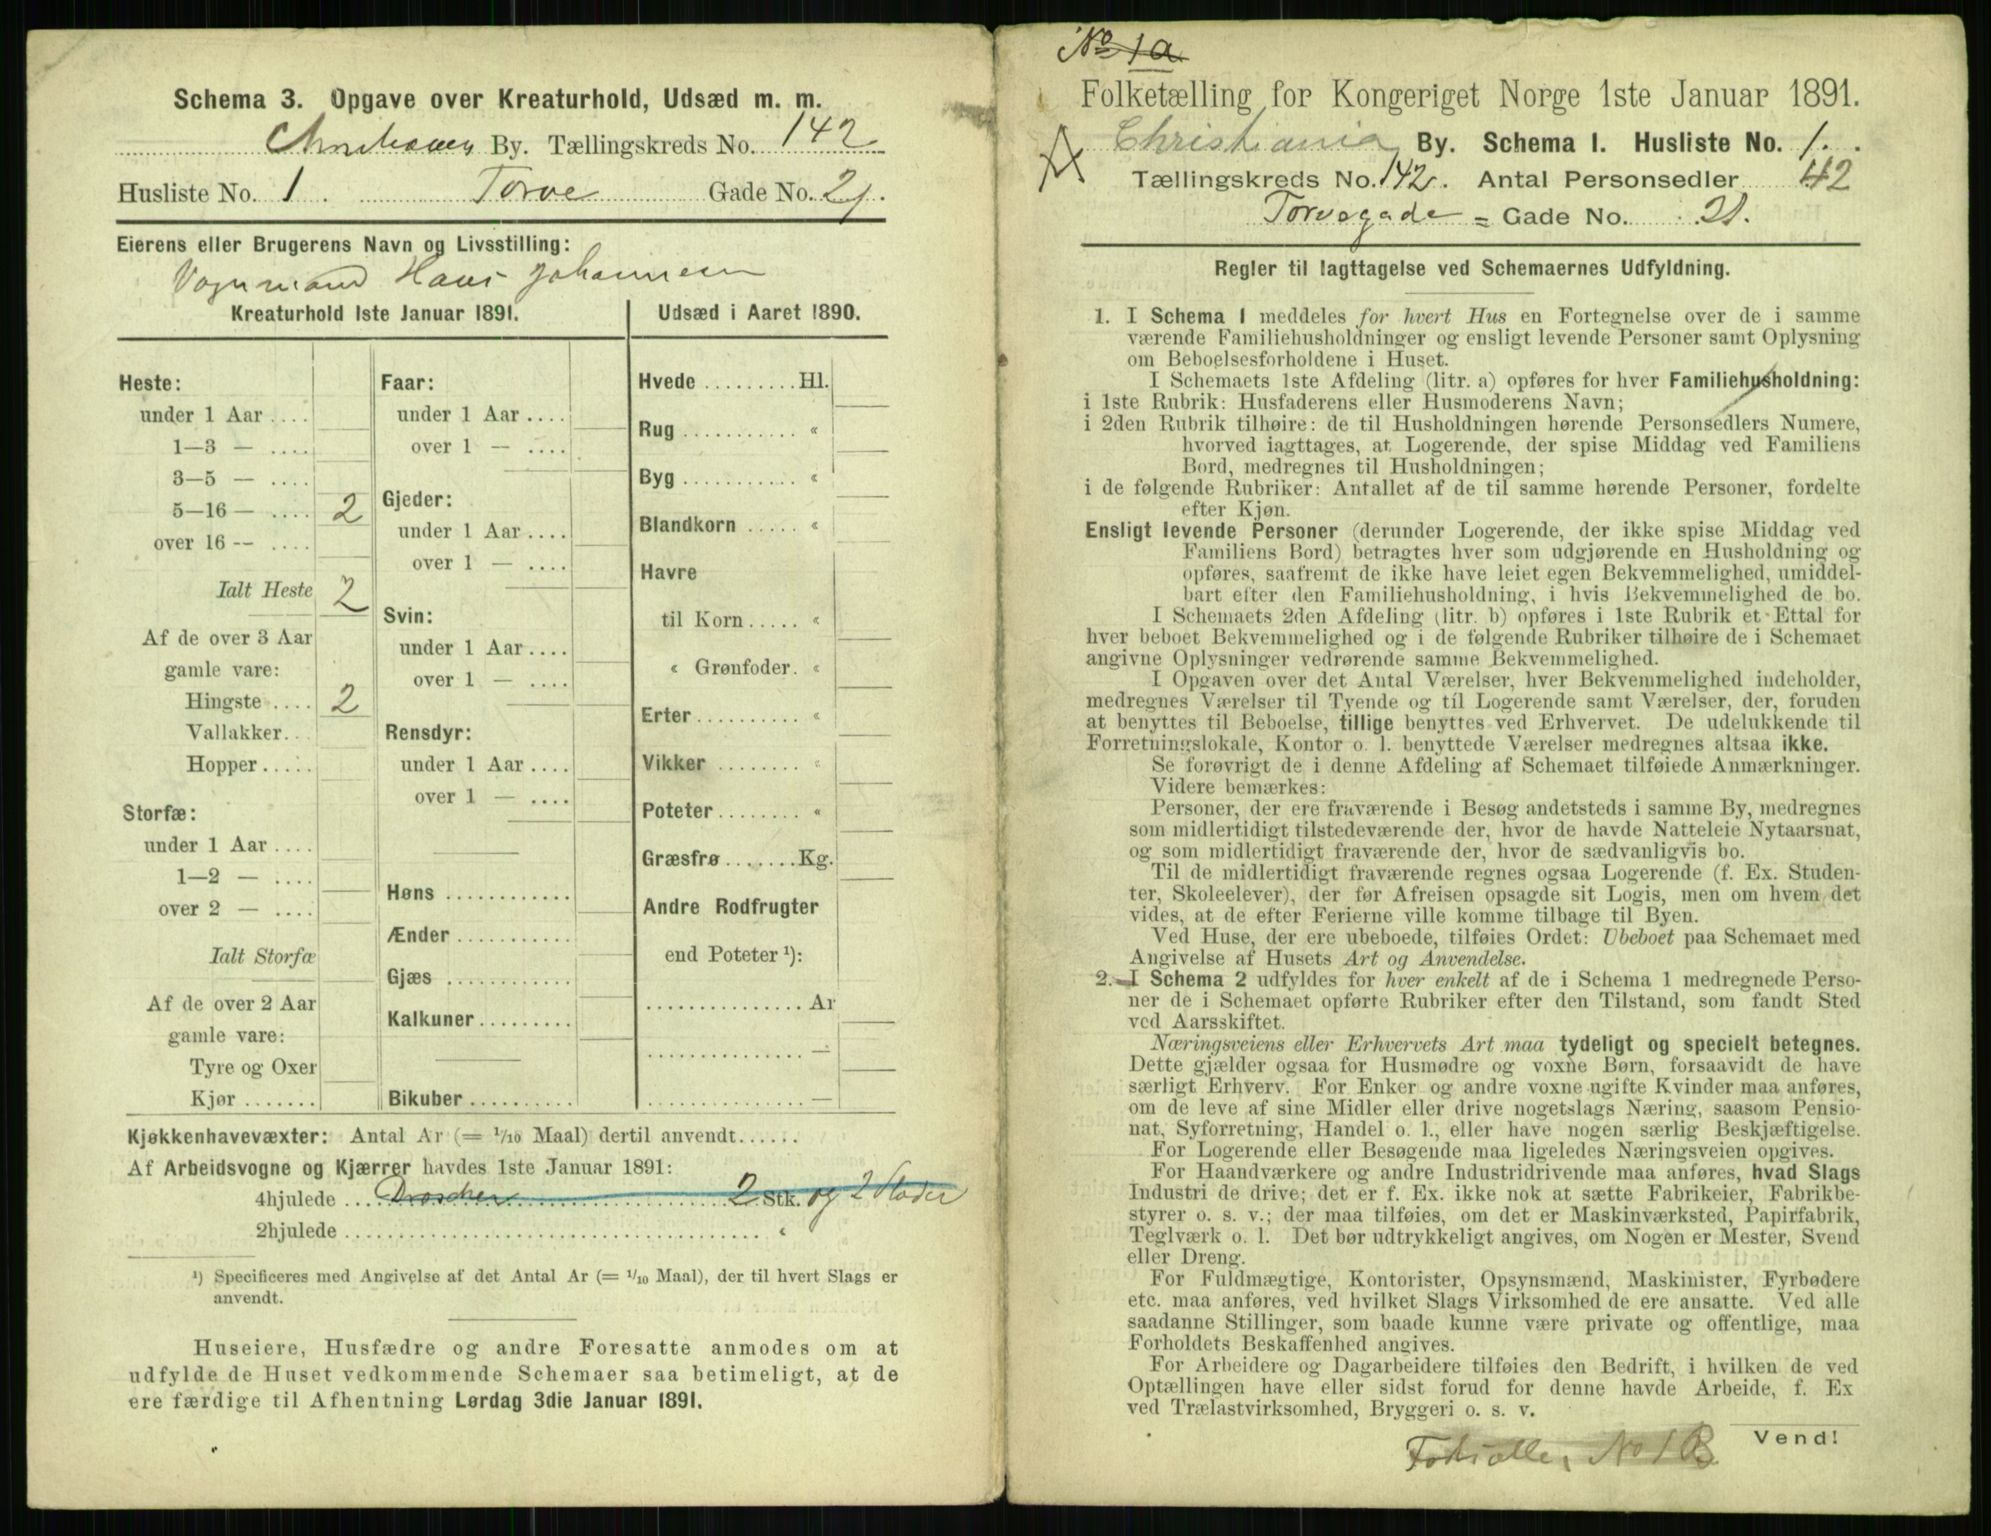 Schema 3. Opgave over Kreaturhold, Udsæd m. m.
By. Tællingskreds No. 142
Husliste No. 1. Torve Gade No. 21.
Eierens eller Brugerens Navn og Livsstilling:
Vognmand Hans Johannesen
Kreaturhold 1ste Januar 1891.
Heste:
under 1 Aar ....
1—3 — ....
3—5 — ....
5—16 — .... 2
over 16 -- ....
Ialt Heste 2
Af de over 3 Aar
gamle vare:
Hingste .... 2
Vallakker...
Hopper .....
Storfæ:
under 1 Aar ....
1—2 — ....
over 2 — ....
Ialt Storfæ
Af de over 2 Aar
gamle vare:
Tyre og Oxer
Kjør .......
Faar:
under 1 Aar ....
over 1 — ....
Gjeder:
under 1 Aar ....
over 1 — ....
Svin:
under 1 Aar ....
over 1 — ....
Rensdyr:
under 1 Aar ....
over 1 — ....
Høns ............
Ænder ...........
Gjæs ............
Kalkuner .........
Bikuber ..........
Udsæd i Aaret 1890.
Hvede ......... Hl.
Rug ........... «
Byg ........... «
Blandkorn ..... «
Havre
til Korn ..... «
« Grønfoder. «
Erter .......... «
Vikker ........ «
Poteter ........ «
Græsfrø ....... Kg.
Andre Rodfrugter
end Poteter ¹):
............... Ar
............... —
............... —
Kjøkkenhavevæxter: Antal Ar (= 1/10 Maal) dertil anvendt......
Af Arbeidsvogne og Kjærrer havdes 1ste Januar 1891:
4hjulede ... Droscher 2 Stk. og 2 Slæder
2hjulede ........................................ «
¹) Specificeres med Angivelse af det Antal Ar (= 1/10 Maal), der til hvert Slags er
anvendt.
Huseiere, Husfædre og andre Foresatte anmodes om at
udfylde de Huset vedkommende Schemaer saa betimeligt, at de
ere færdige til Afhentning Lørdag 3die Januar 1891.
No 1a
Folketælling for Kongeriget Norge 1ste Januar 1891.
Christiania By. Schema I. Husliste No. 1.
Tællingskreds No. 142. Antal Personsedler 42
Torvegade = Gade No. 21.
Regler til Iagttagelse ved Schemaernes Udfyldning.
1. I Schema 1 meddeles for hvert Hus en Fortegnelse over de i samme
værende Familiehusholdninger og ensligt levende Personer samt Oplysning
om Beboelsesforholdene i Huset.
I Schemaets 1ste Afdeling (litr. a) opføres for hver Familiehusholdning:
i 1ste Rubrik: Husfaderens eller Husmoderens Navn;
i 2den Rubrik tilhøire: de til Husholdningen hørende Personsedlers Numere,
hvorved iagttages, at Logerende, der spise Middag ved Familiens
Bord, medregnes til Husholdningen;
i de følgende Rubriker: Antallet af de til samme hørende Personer, fordelte
efter Kjøn.
Ensligt levende Personer (derunder Logerende, der ikke spise Middag ved
Familiens Bord) betragtes hver som udgjørende en Husholdning og
opføres, saafremt de ikke have leiet egen Bekvemmelighed, umiddel-
bart efter den Familiehusholdning, i hvis Bekvemmelighed de bo.
I Schemaets 2den Afdeling (litr. b) opføres i 1ste Rubrik et Ettal for
hver beboet Bekvemmelighed og i de følgende Rubriker tilhøire de i Schemaet
angivne Oplysninger vedrørende samme Bekvemmelighed.
I Opgaven over det Antal Værelser, hver Bekvemmelighed indeholder,
medregnes Værelser til Tyende og til Logerende samt Værelser, der, foruden
at benyttes til Beboelse, tillige benyttes ved Erhvervet. De udelukkende til
Forretningslokale, Kontor o. l. benyttede Værelser medregnes altsaa ikke.
Se forøvrigt de i denne Afdeling af Schemaet tilføiede Anmærkninger.
Videre bemærkes:
Personer, der ere fraværende i Besøg andetsteds i samme By, medregnes
som midlertidigt tilstedeværende der, hvor de havde Natteleie Nytaarsnat,
og som midlertidigt fraværende der, hvor de sædvanligvis bo.
Til de midlertidigt fraværende regnes ogsaa Logerende (f. Ex. Studen-
ter, Skoleelever), der før Afreisen opsagde sit Logis, men om hvem det
vides, at de efter Ferierne ville komme tilbage til Byen.
Ved Huse, der ere ubeboede, tilføies Ordet: Ubeboet paa Schemaet med
Angivelse af Husets Art og Anvendelse.
2. I Schema 2 udfyldes for hver enkelt af de i Schema 1 medregnede Perso-
ner de i Schemaet opførte Rubriker efter den Tilstand, som fandt Sted
ved Aarsskiftet.
Næringsveiens eller Erhvervets Art maa tydeligt og specielt betegnes.
Dette gjælder ogsaa for Husmødre og voxne Børn, forsaavidt de have
særligt Erhverv. For Enker og andre voxne ugifte Kvinder maa anføres,
om de leve af sine Midler eller drive nogetslags Næring, saasom Pensio-
nat, Syforretning, Handel o. l., eller have nogen særlig Beskjæftigelse.
For Logerende eller Besøgende maa ligeledes Næringsveien opgives.
For Haandværkere og andre Industridrivende maa anføres, hvad Slags
Industri de drive; det er f. Ex. ikke nok at sætte Fabrikeier, Fabrikbe-
styrer o. s. v.; der maa tilføies, om det er Maskinværksted, Papirfabrik,
Teglværk o. l. Det bør udtrykkeligt angives, om Nogen er Mester, Svend
eller Dreng.
For Fuldmægtige, Kontorister, Opsynsmænd, Maskinister, Fyrbødere
etc. maa anføres, ved hvilket Slags Virksomhed de ere ansatte. Ved alle
saadanne Stillinger, som baade kunne være private og offentlige, maa
Forholdets Beskaffenhed angives.
For Arbeidere og Dagarbeidere tilføies den Bedrift, i hvilken de ved
Optællingen have eller sidst forud for denne havde Arbeide, f. Ex
ved Trælastvirksomhed, Bryggeri o. s. v.
Vend!
No 1 B